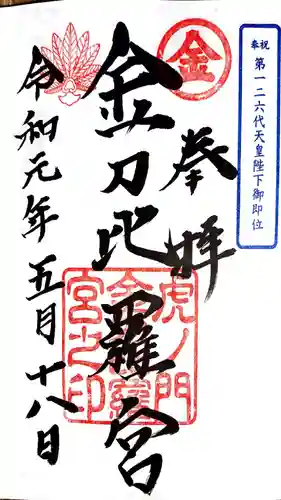 奉祝 第一二六代天皇陛下御即位
㊎
奉拝
金刀比羅宮
虎ノ門
金刀比羅
宮之印
令和元年五月十八日